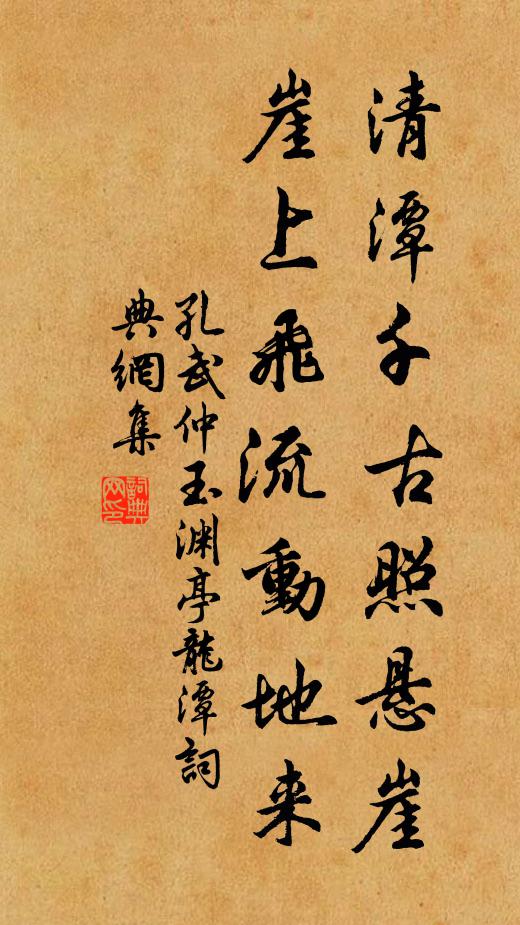 清潭千古照悬崖
崖上飛流動地来
孔武仲玉渊亭龍潭詞
典網集
詞典
网印